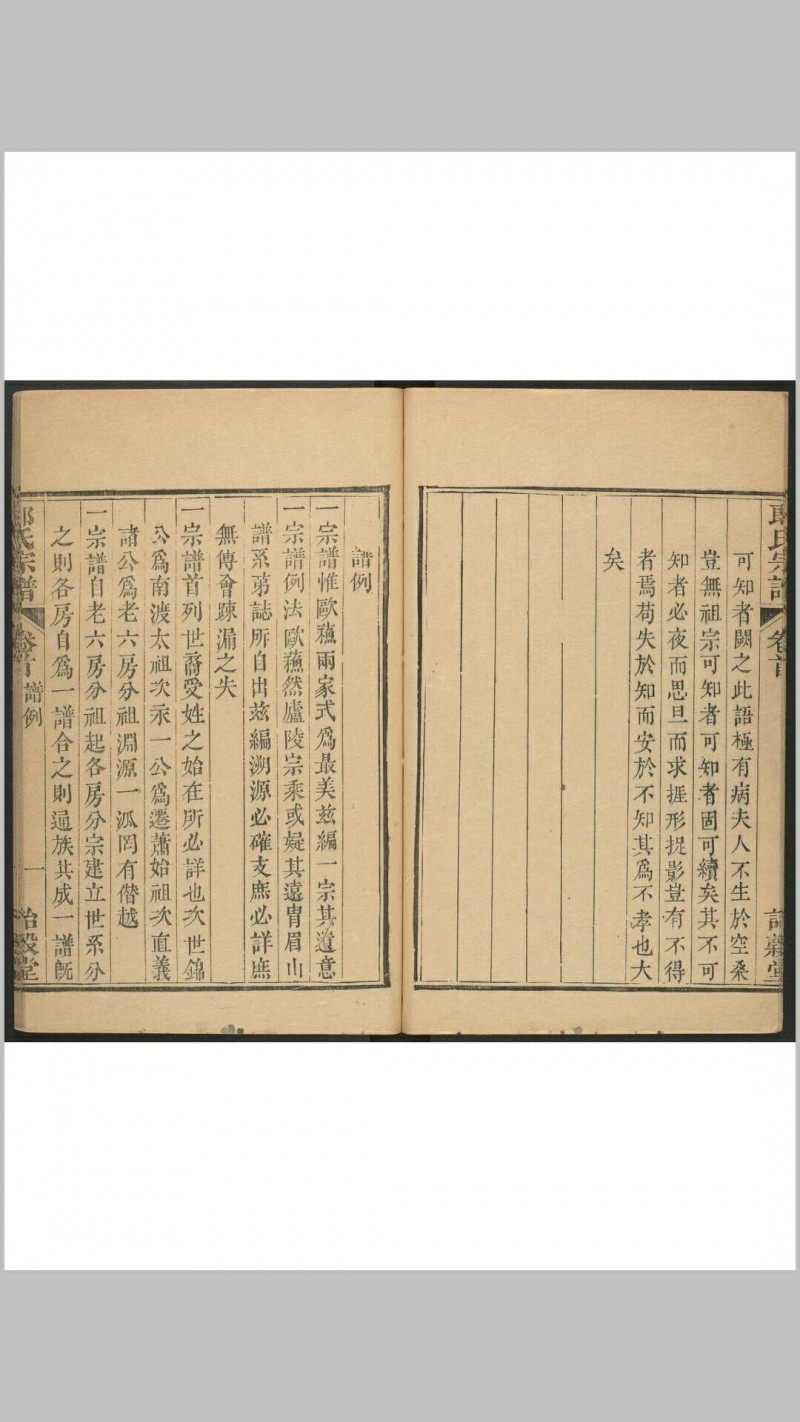 可知者闕之此語極有病夫人不生於空桑
豈無祖宗可知者可知者固可續矣其不可
知者必夜而思旦而求捱形捉影豈有不得
者焉苟失於知而安於不知其為不孝也大
矣
氏宗譜
卷首
譜例
一宗譜惟歐蘓兩家式為最美兹編一宗其遺意
一宗譜例法歐蘓然廬陵宗乘或疑其遠冑眉山
譜系苐誌所自出兹編溯源必確支庶必詳庶
無傅會踈漏之失
一宗譜首列世裔受姓之始在所必詳也次世錦
公為南渡太祖次永一公為遷蕭始祖次直義
諸公為老六房分祖淵源一派罔有僭越
一宗譜自老六房分祖起各房分宗建立世系分
之則各房自為一譜合之則通族共成一譜旣
氏宗譜
卷首
譜例
一
詒穀堂